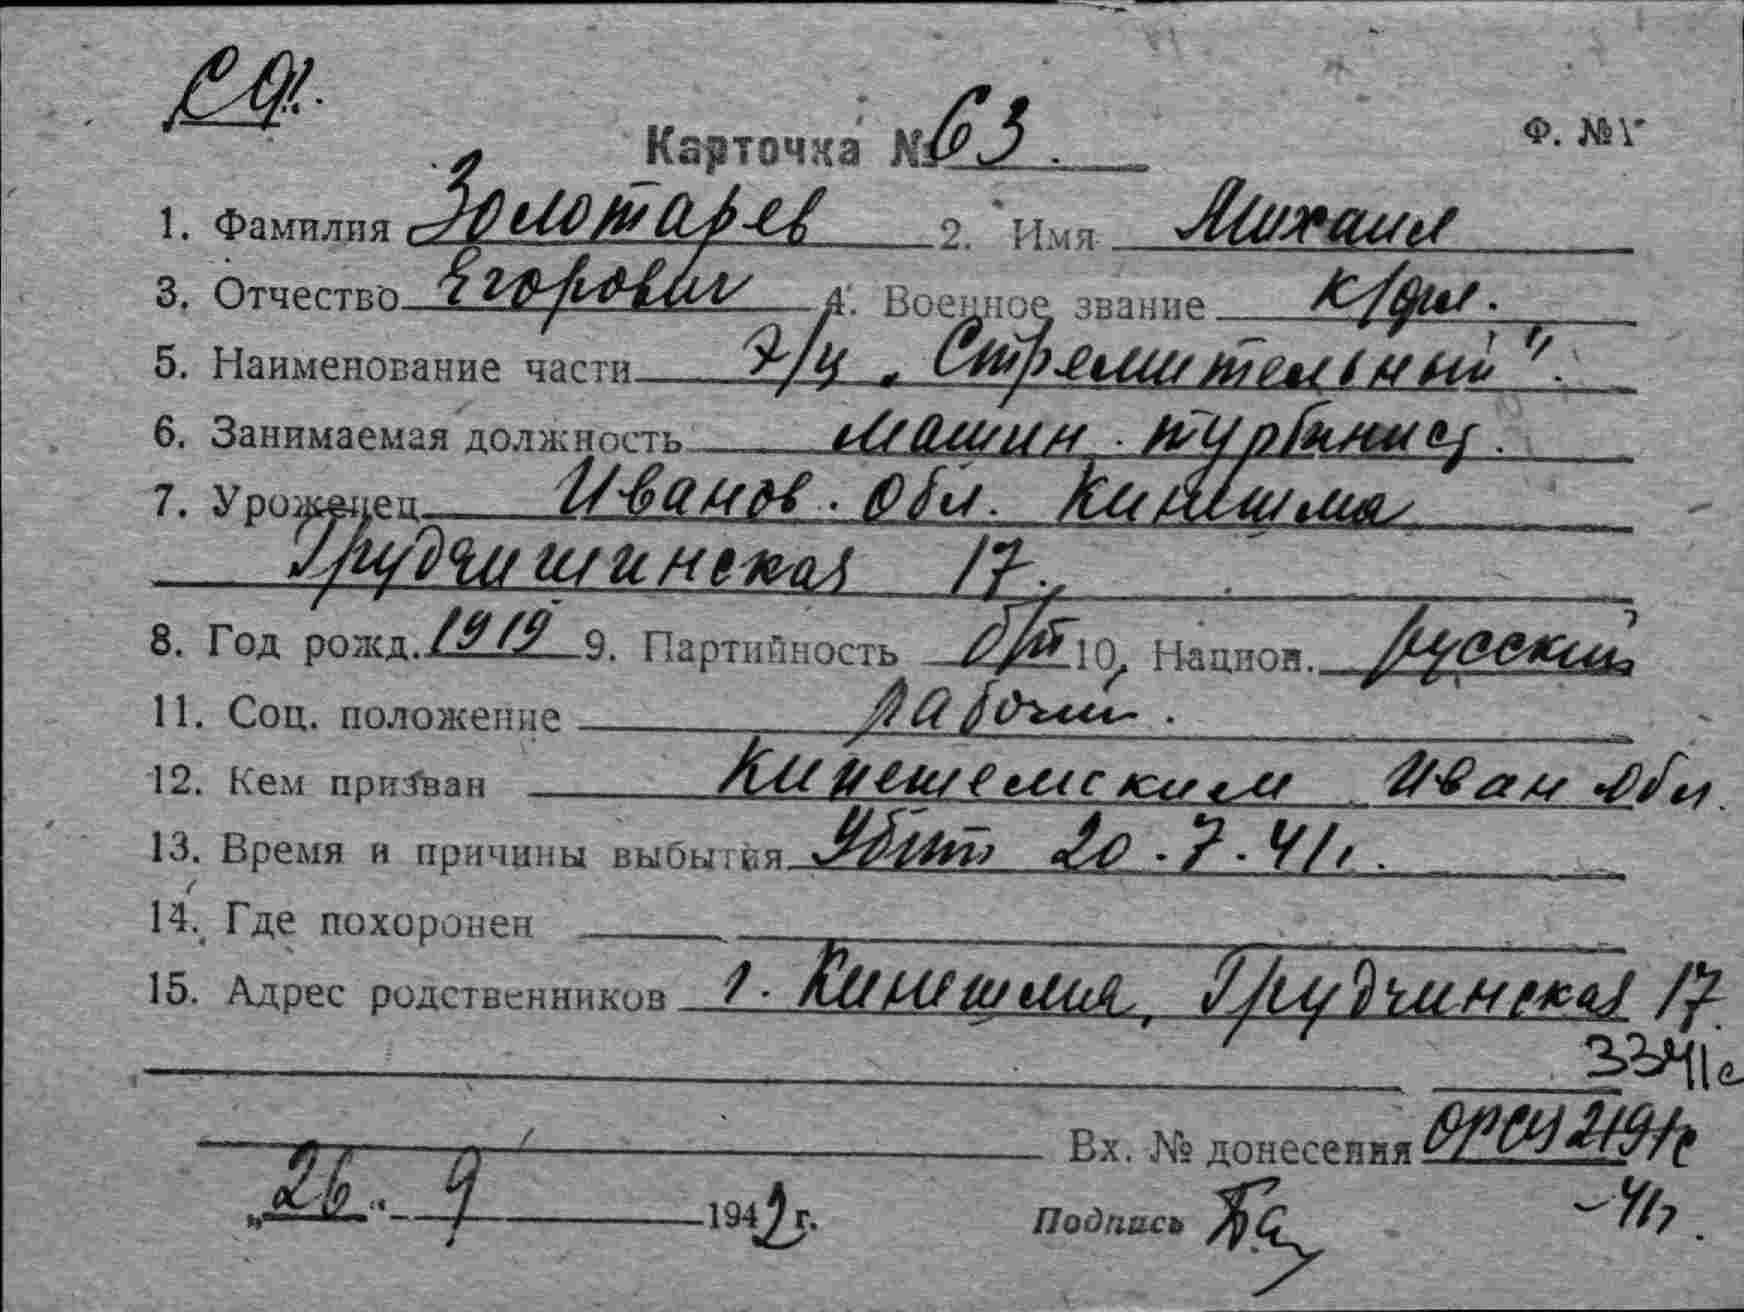 СФ.
Карточка № 63.
Ф. №1
1. Фамилия Золотарев 2. Имя Михаил
3. Отчество Егорович 4. Военное звание к/фл.
5. Наименование части э/ц „Стремительный".
6. Занимаемая должность машин. турбинист.
7. Уроженец Иванов. обл. Кинешма
Грудчишинская 17.
8. Год рожд. 1919 9. Партийность б/п 10. Национ. русский
11. Соц. положение рабочий.
12. Кем призван Кинешемским Иван обл.
13. Время и причины выбытия Убит 20.7.41г.
14. Где похоронен
15. Адрес родственников г. Кинешма, Грудчинская 17.
3341с
Вх. № донесения 2191с
-41г.
„26" 9 1942г. Подпись